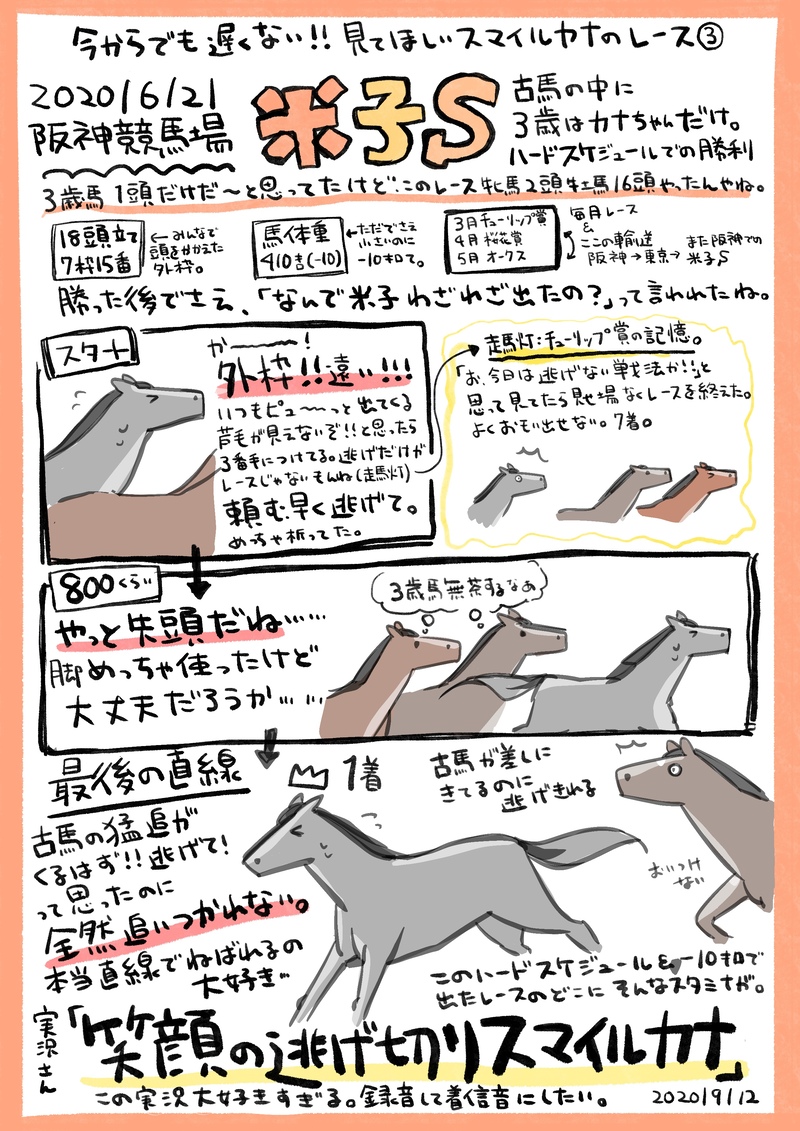 今からでも遅くない!! 見てほしいスマイルカナのレース③
2020/6/21
阪神競馬場
米子S
古馬の中に
3歳はカナちゃんだけ。
ハードスケジュールでの勝利
3歳馬1頭だけだ〜と思ってたけど、このレース牝馬2頭牡馬16頭やったんやね。
18頭立て
7枠15番
←みんなで
頭をかかえた
外枠。
馬体重
410キロ(-10)
←ただでさえ
小さいのに
-10キロて。
3月チューリップ賞
4月 桜花賞
5月 オークス
毎月レース
&
ここの輸送
阪神→東京→
また阪神での
米子S
勝った後でさえ、「なんで米子わざわざ出たの?」って言われたね。
スタート
か〜〜〜!
外枠!!遠い!!!
いつもピュ〜〜っと出てくる
芦毛が見えないぞ!!と思ったら
3番手につけてる。逃げだけが
レースじゃないもんね(走馬灯)
頼む早く逃げて。
めっちゃ祈ってた。
走馬灯:チューリップ賞の記憶。
「お、今日は逃げない戦法か!」と
思って見てたら見せ場なくレースを終えた。
よくおもい出せない。7着。
800くらい
やっと先頭だね……
脚めっちゃ使ったけど
大丈夫だろうか……
3歳馬無茶するなあ
最後の直線
1着
古馬の猛追が
くるはず!!逃げて!
って思ったのに
全然追いつかれない。
本当直線でねばれるの
大好き…
古馬が差しに
きてるのに
逃げきれる
おいつけ
ない
このハードスケジュール&-10キロで
出たレースのどこにそんなスタミナが。
実況さん
「笑顔の逃げ切りスマイルカナ」
この実況大好きすぎる。録音して着信音にしたい。
2020/9/12